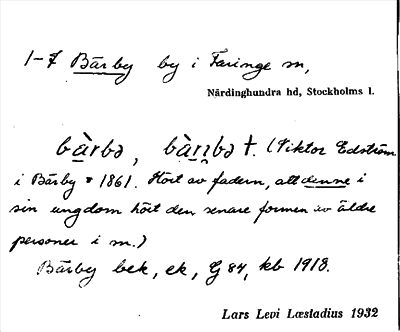 1-7 Bärby by i Faringe sn,
Närdinghundra hd, Stockholms l.
bàrbə, bàrbə †. (Viktor Edström
i Bärby * 1861. Hört av fadern, att denne i
sin ungdom hört den senare formen av äldre
personer i sn.)
Bärby bek, ek, G 84, kb 1918.
Lars Levi Læstadius 1932